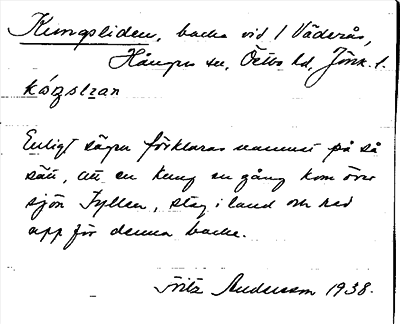 Kungsliden, backe vid 1 Väderås,
Hångers sn, Östbo hd, Jönk. l.
kóŋslɩan
Enligt sägen förklaras namnet på så
sätt, att en kung en gång kom över
sjön Fyllen, steg i land och red
upp för denna backe.
Fritz Andersson 1938.